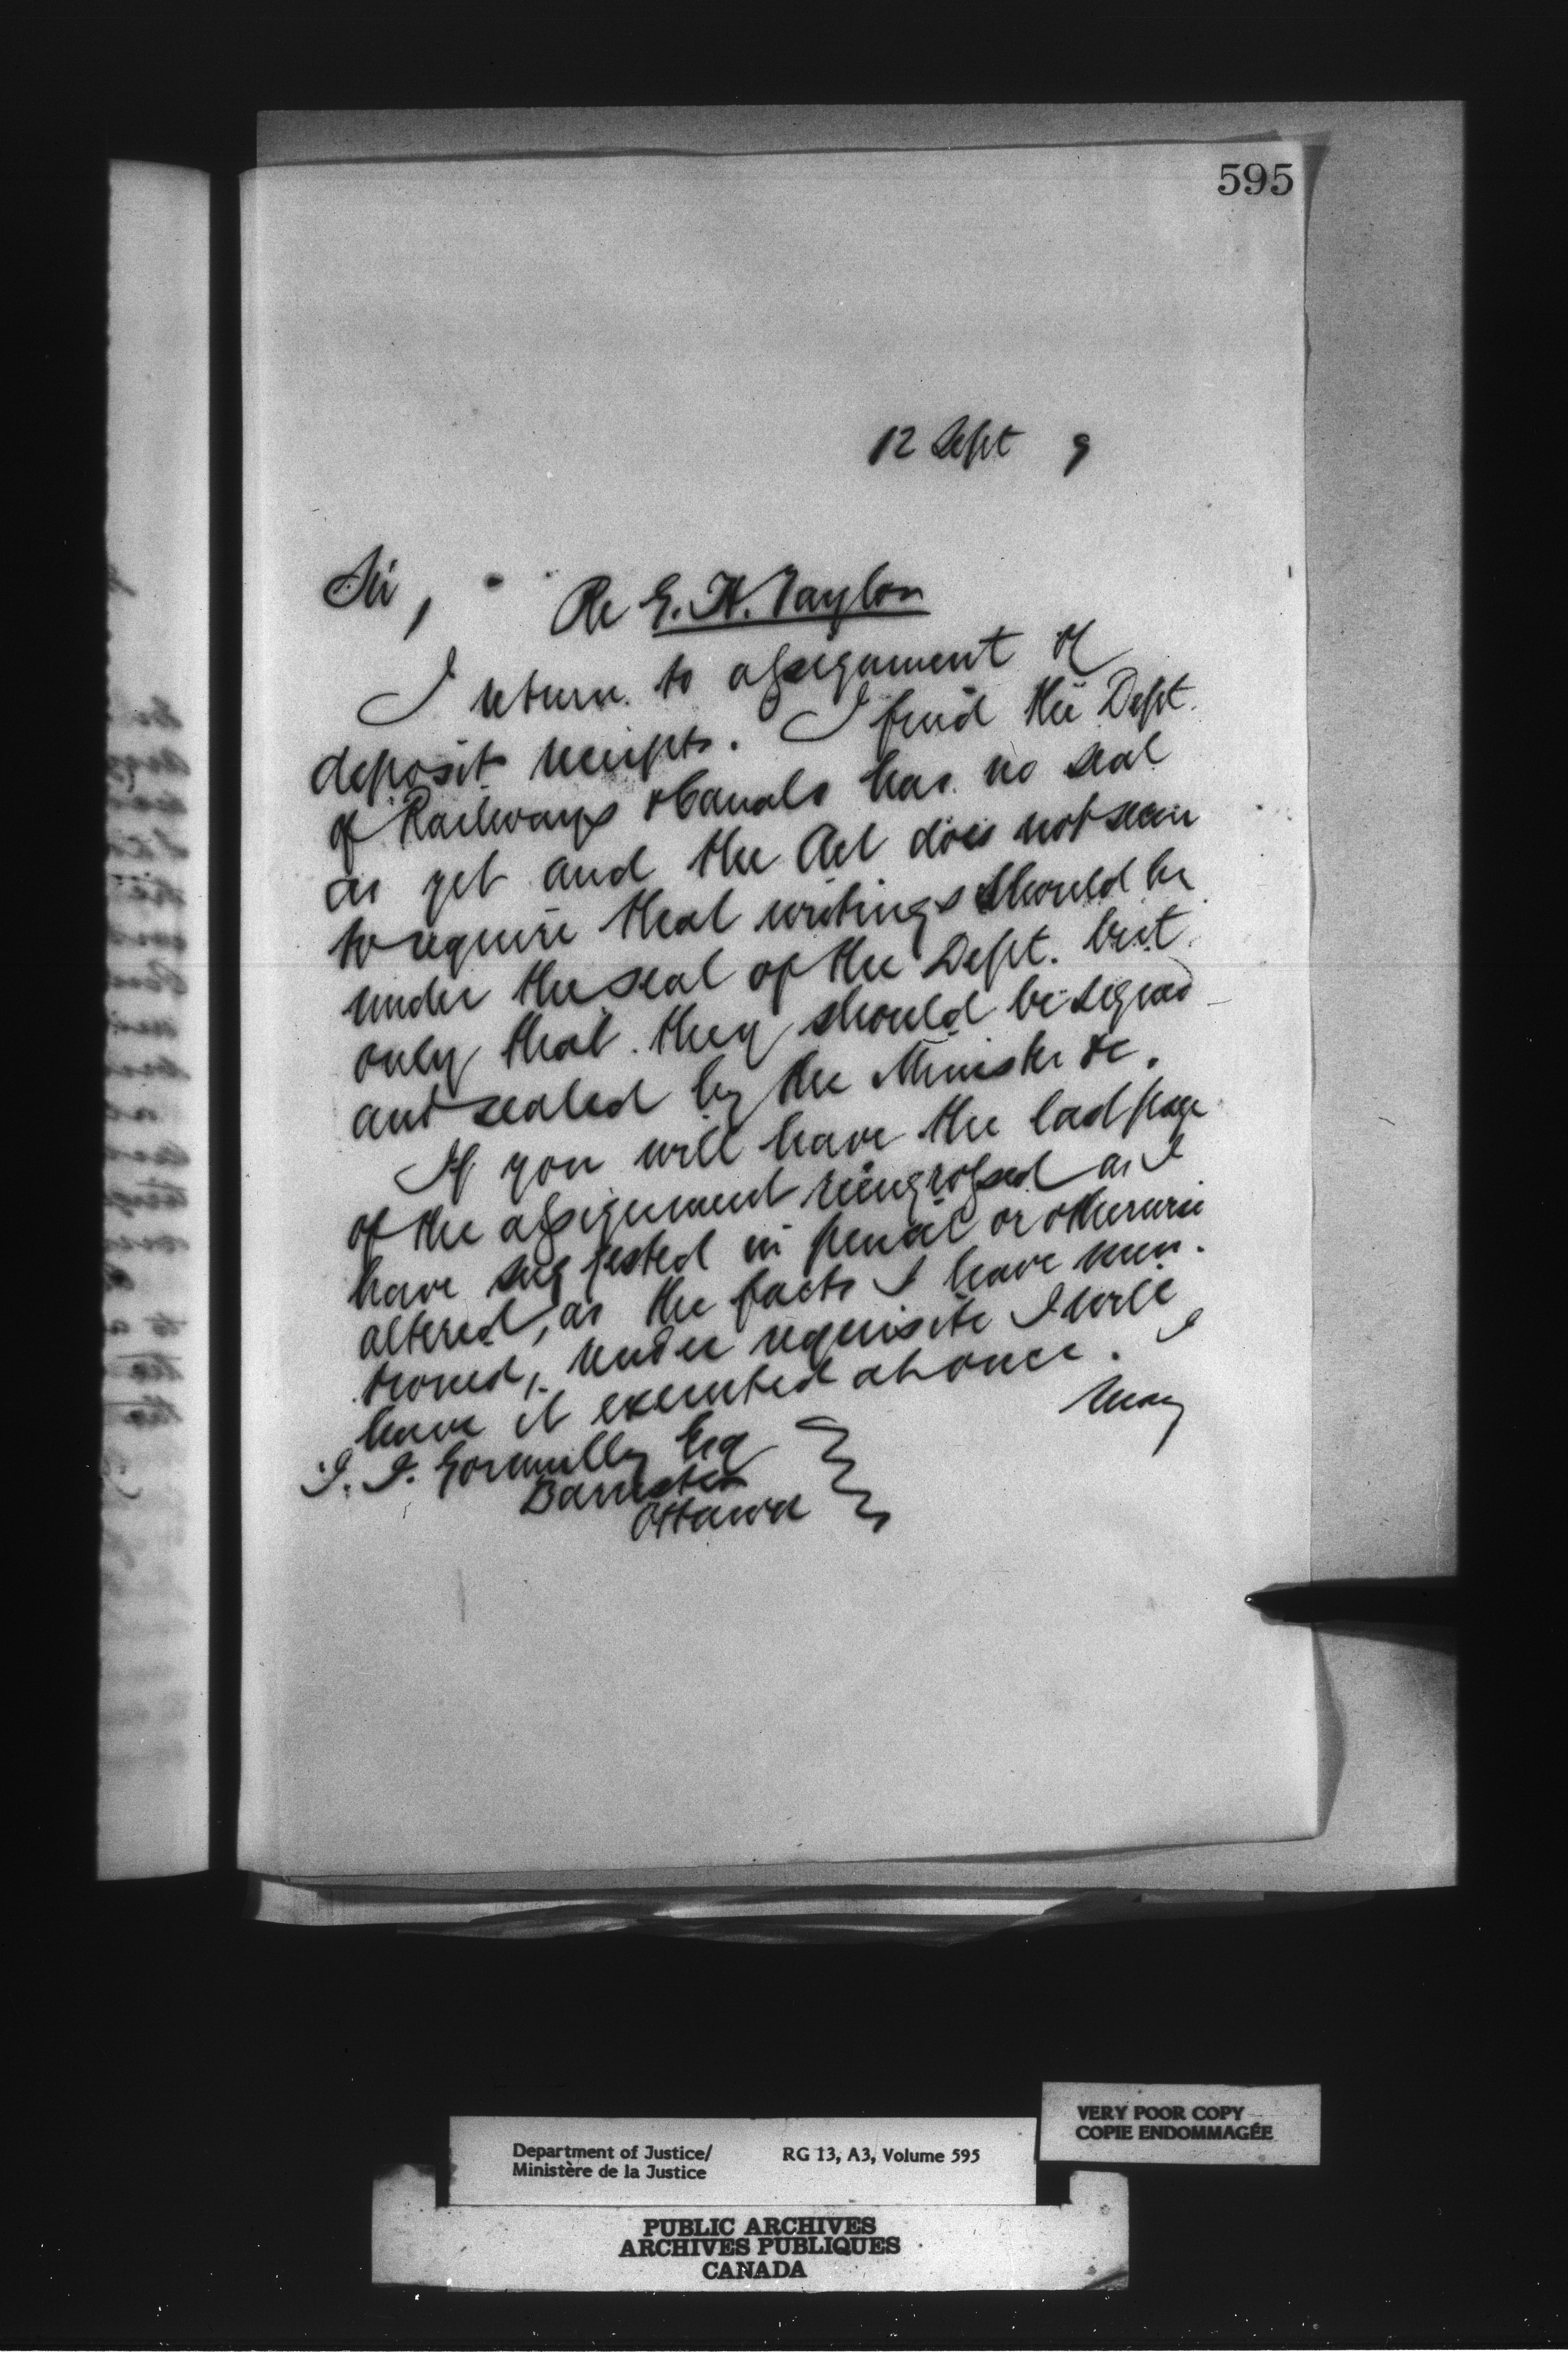 595
12 Sept 9
Sir,
Re E. H. Taylor
I return to assignment of
deposit receipts. I find the Dept.
of Railways & Canals has no seal
as yet and the Act does not seem
to require that writings should be
under the seal of the Dept. but
only that they should be signed
and sealed by the Minister &c.
If you will have the last page
of the assignment reengrossed as I
have suggested in pencil or otherwise
altered, as the facts I have men-
tioned, render requisite I will
have it executed at once. I
may
J. J. Gormully Esq
Barrister
Ottawa
VERY POOR COPY
COPIE ENDOMMAGÉE
Department of Justice/ RG 13, A3, Volume 595
Ministère de la Justice
PUBLIC ARCHIVES
ARCHIVES PUBLIQUES
CANADA